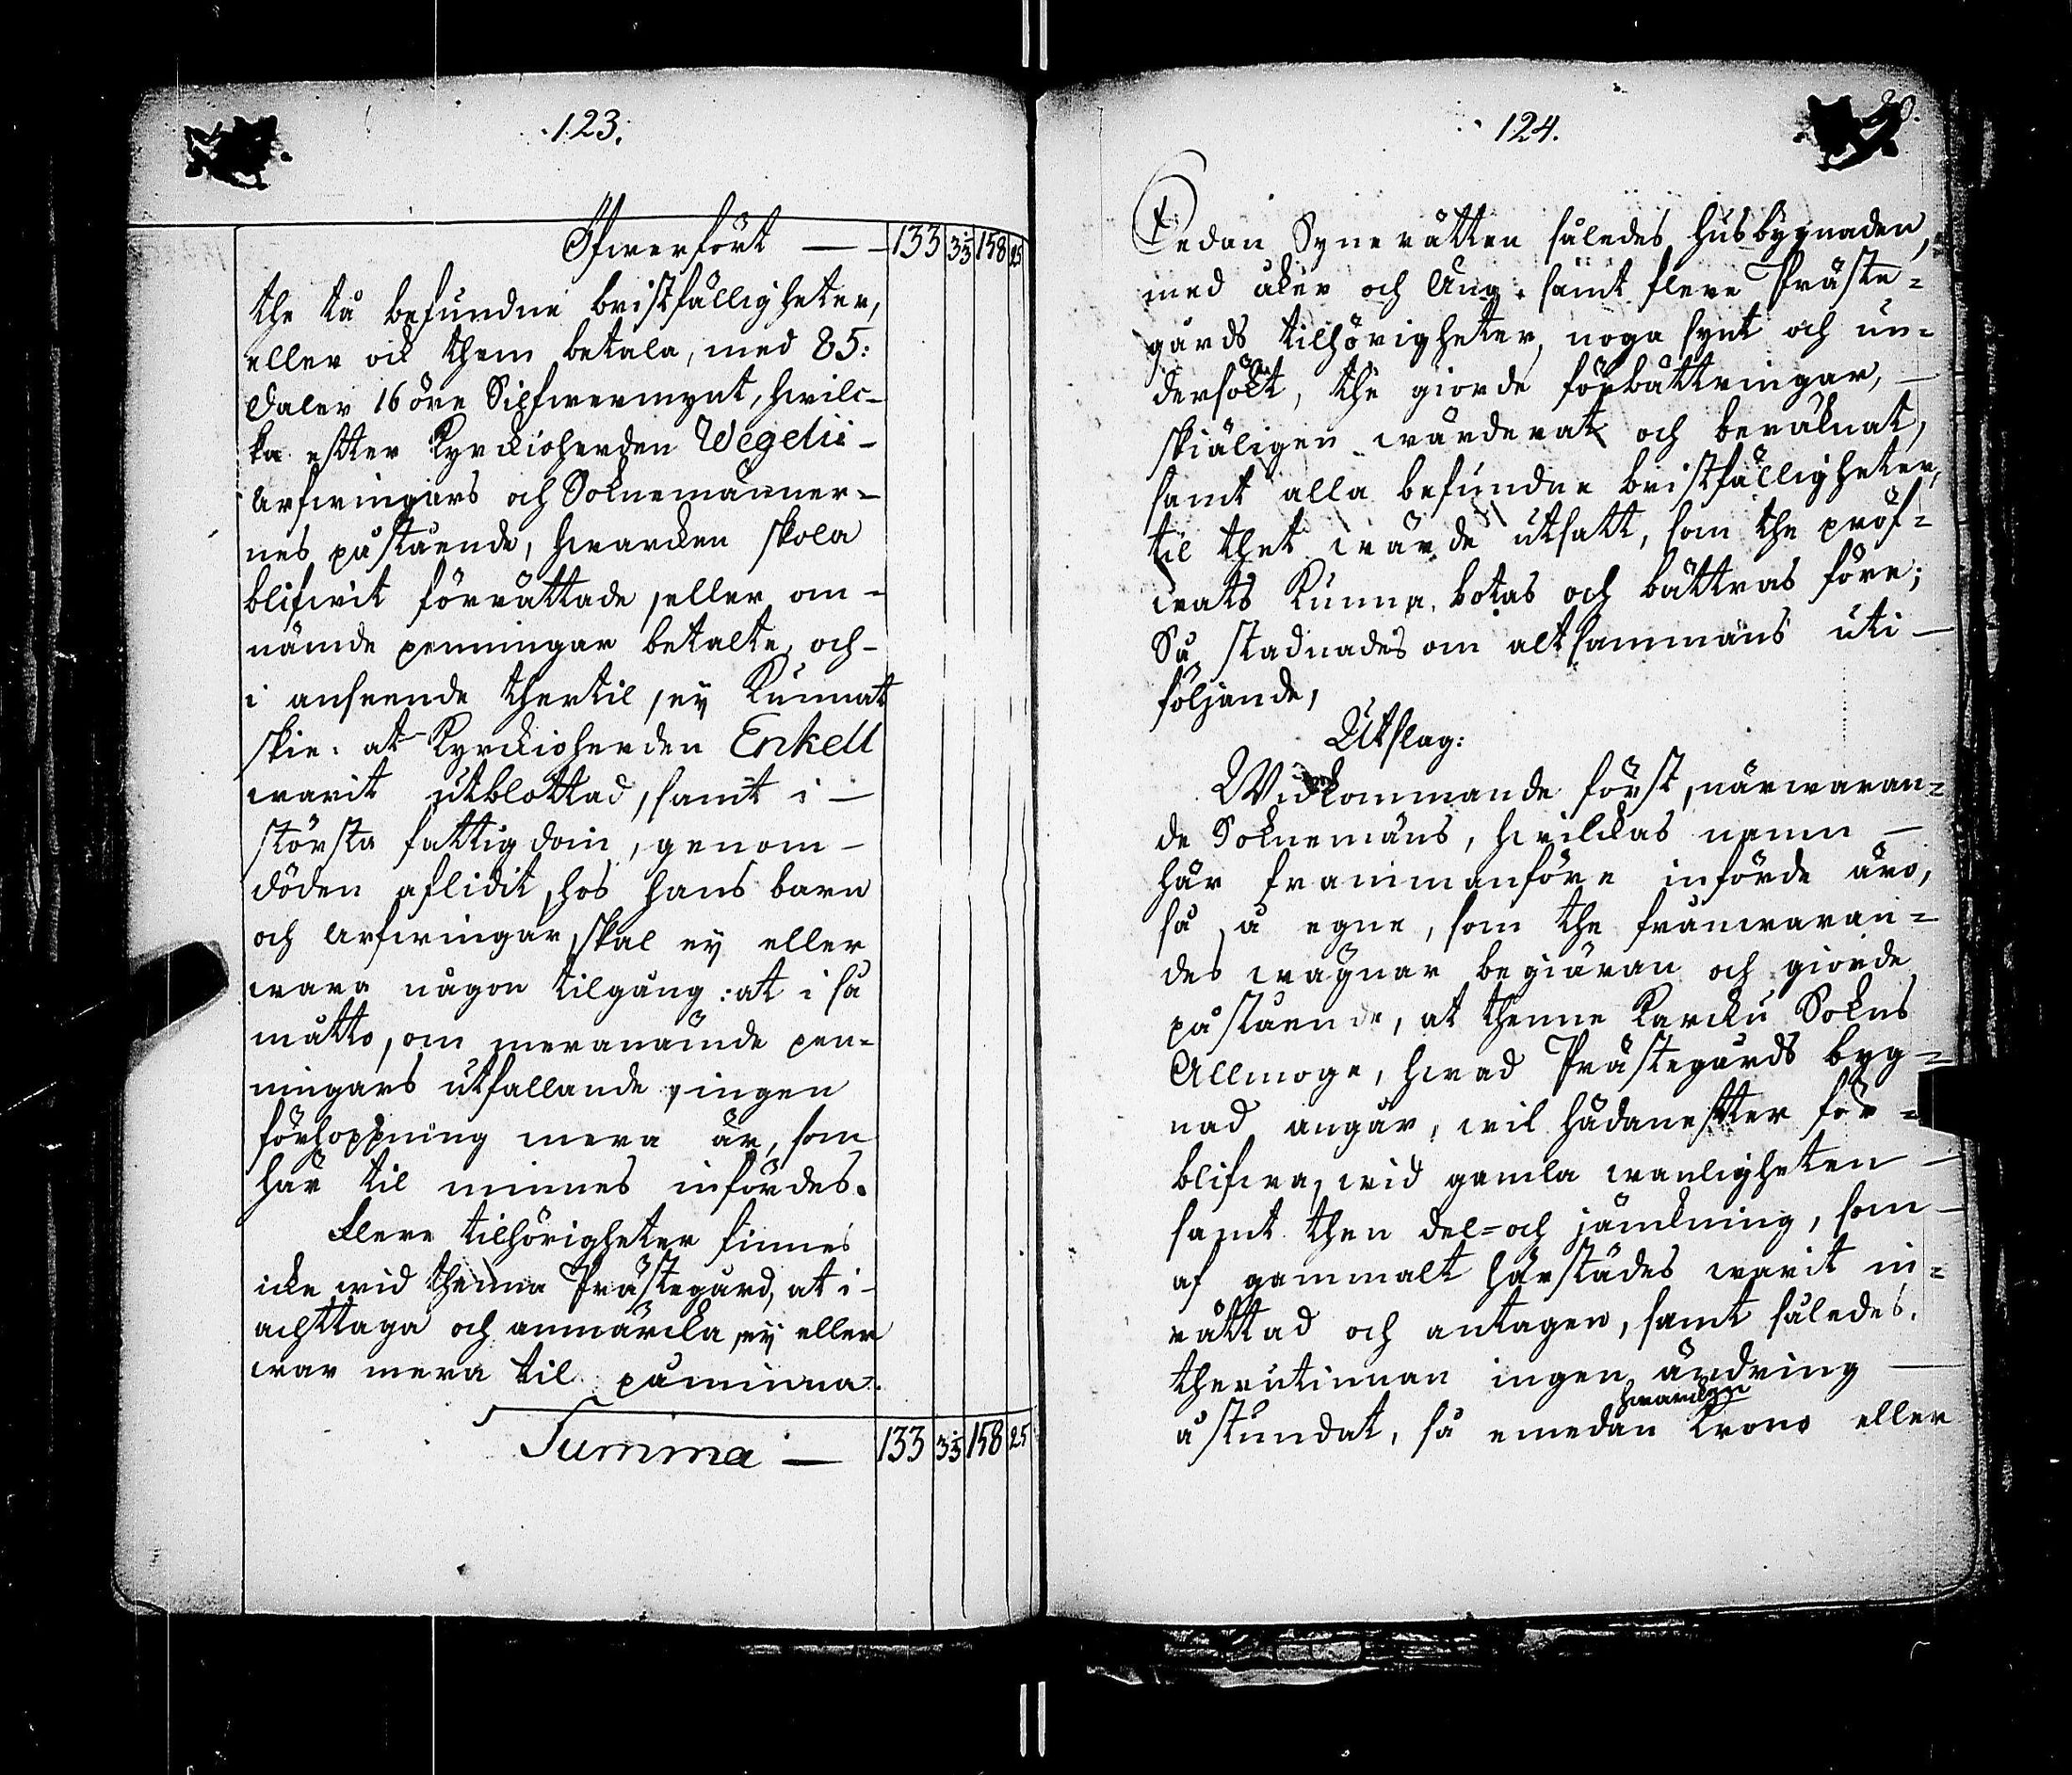 123.
Öfwerfört — 133 33 158 25
the tå befundne bristfälligheter,
eller ock them betala, med 85:
daler 16 öre Silfwermynt, hwilc-
ka efter Kyrckioherden Wegelii-
arfwingars och Soknemänner-
nes påstående, hwarcken skola
blifwit förrättade, eller om-
nämde penningar betalte, och-
i anseende thertil, ey kunnat
skie: at Kyrckioherden Enkell
warit utblottad, samt i —
största fattigdom, genom —
döden aflidit, hos hans barn
och arfwingar, skal ey eller
wara någon tilgång: at i så
måtto, om meranämde pen-
ningars utfallande, ingen
förhoppning mera är, som
här til minnes infördes.
Flere tilhörigheter finnes
icke wid thenna Prästegård, at i-
achttaga och anmärcka, ey eller
war mera til påminna.
Summa — 133 33 158 25
124.
Sedan Synerätten således husbygnaden,
med åker och Äng, samt flere Präste-
gårds tilhörigheter, noga synt och un-
dersökt, the giorde förbättringar, —
skiäligen wärderat och beräknat,
samt alla befundne bristfälligheter,
til thet wärde utsatt, som the pröf-
wats kunna botas och bättras före;
Så stadnades om altsammans uti —
följande,
Utslag:
Widkommande först, närwaran-
de Soknemäns, hwilckas namn —
här frammanföre införde äro,
så å egne, som the frånwaran-
des wägnar begiäran och giorde
påstående, at thenne Karcku Sokns
Allmoge, hwad Prästegårds byg-
nad angår, wil hädanefter för-
blifwa, wid gamla wanligheten —
samt then del- och jämkning, som —
af gammalt härstädes warit in-
rättad och antagen, samt således,
therutinnan ingen ändring —
hwarcken
åstundat, så emedan Krono eller